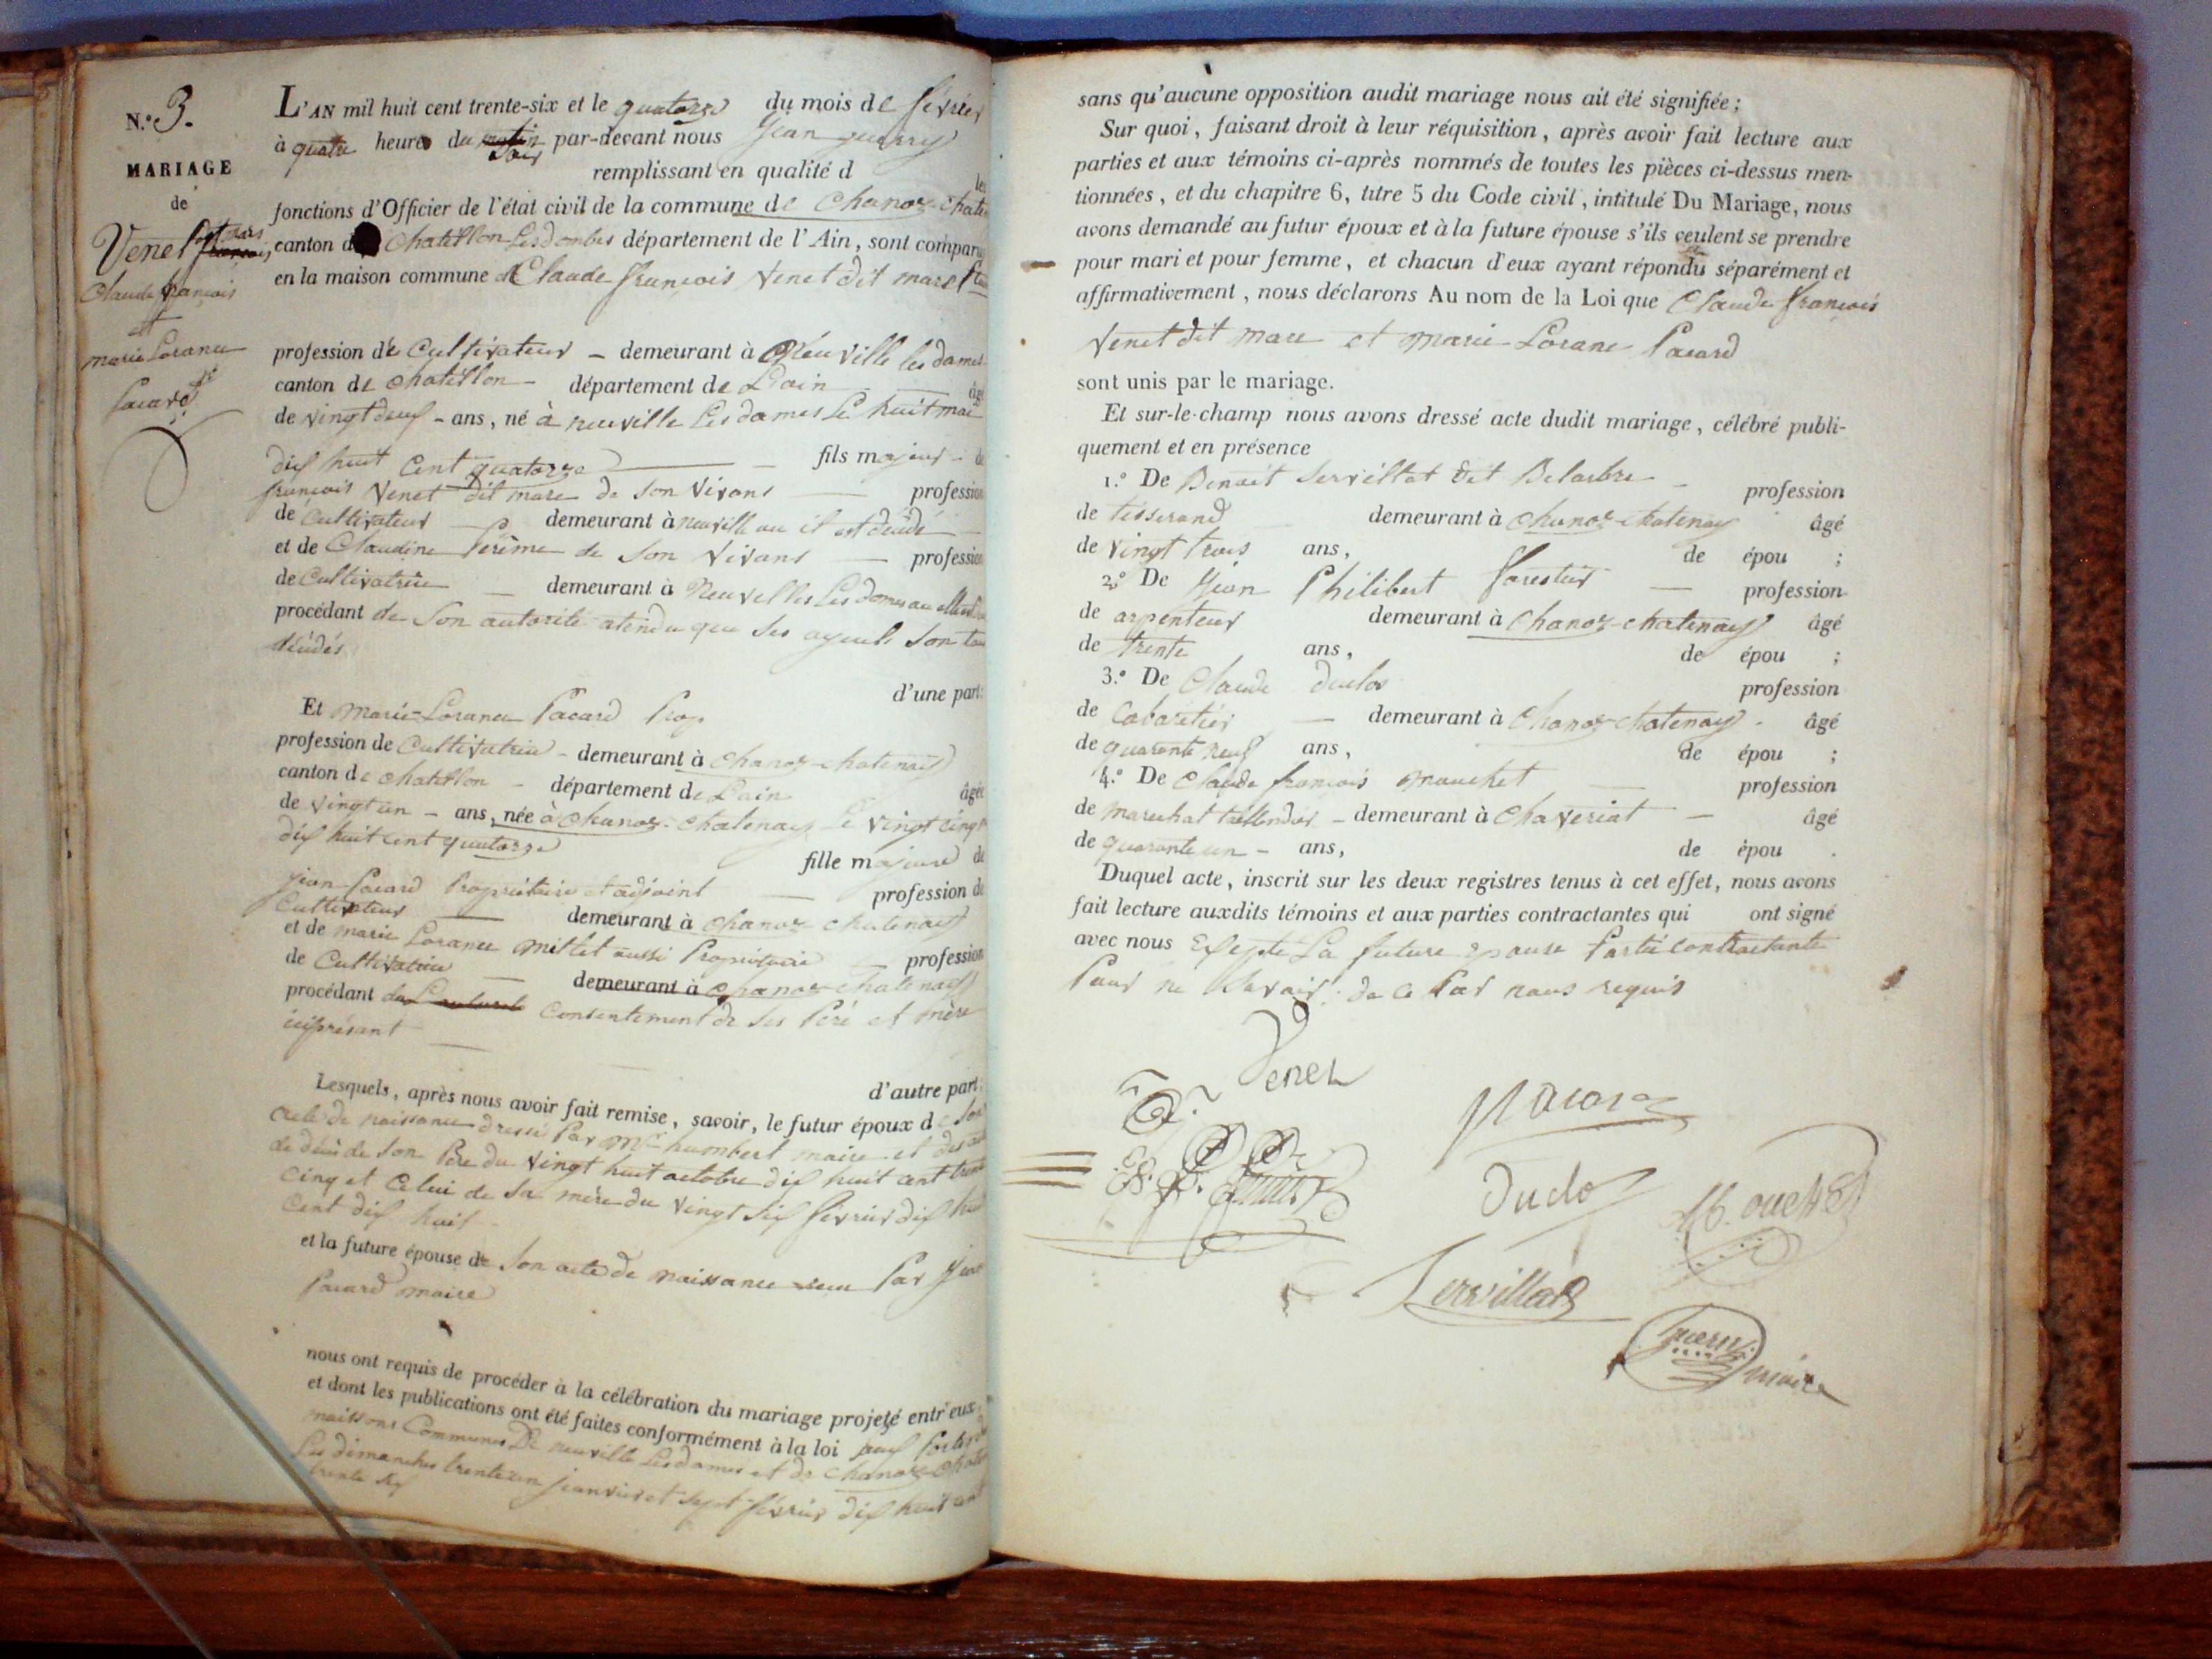 N.º 3.
MARIAGE
de
Venet dit mars
Claude françois
et
marie Lorance
Pacard
L'AN mil huit cent trente-six et le quatorze du mois de février
à quatre heures du matin soir par-devant nous Jean guerry
remplissant en qualité d les
fonctions d'Officier de l'état civil de la commune de Chanoz-chate
canton d Chatillon Lesdombes département de l'Ain, sont comparus
en la maison commune Claude françois Venet dit mare
profession de Cultivateur – demeurant à Neuville les dames
canton de chatillon – département de Lain âgé
de vingt deux – ans, né à neuville Les dames Le huit mai
dix huit Cent quatorze — fils majeur de
françois Venet dit mare de son vivant — profession
de Cultivateur — demeurant à neuville ou il est décédé
et de Claudine de son vivant — profession
de Cultivatrice — demeurant à Neuvelles Les dames ou elle est
procédant de Son autorité atendu que ses ayeuls son tous
décédés
d'une part:
Et marie-Lorance Pacard Prop
profession de Cultivatrice – demeurant à chanoz-chatenay
canton de chatillon – département de Lain âgée
de vingt un – ans, née à chanoz-chatenay Le vingt cinq
dix huit cent quatorze fille majeure de
jean Pacard Propriétaire et adjoint — profession de
Cultivateur — demeurant à chanoz chatenay
et de marie Lorance millet aussi Propriétaire — profession
de Cultivatrice — demeurant à chanoz chatenay
procédant du Consentement de ses Péré et mère
iciprésant
d'autre part:
Lesquels, après nous avoir fait remise, savoir, le futur époux de son
acte de naissance dressé Par Mr humbert maire et des
de décè de son Père du vingt huit octobre dix huit cent trente
cinq et Celui de sa mère du vingt six février dix huit
Cent dix huit
et la future épouse de Son acte de naissance recu Par jean
Pacard maire
nous ont requis de procéder à la célébration du mariage projeté entr'eux,
et dont les publications ont été faites conformément à la loi aux Portes
maissons Communes De neuville Lesdames et de chanoz chate
Les dimanches trente un jeanvier et sept février dix huit cent
trente six
sans qu'aucune opposition audit mariage nous ait été signifiée;
Sur quoi, faisant droit à leur réquisition, après avoir fait lecture aux
parties et aux témoins ci-après nommés de toutes les pièces ci-dessus men-
tionnées, et du chapitre 6, titre 5 du Code civil, intitulé Du Mariage, nous
avons demandé au futur époux et à la future épouse s'ils veulent se prendre
pour mari et pour femme, et chacun d'eux ayant répondu séparément et
affirmativement, nous déclarons Au nom de la Loi que Claude françois
Venet dit mare et marie Lorane Pacard
sont unis par le mariage.
Et sur-le-champ nous avons dressé acte dudit mariage, célébré publi-
quement et en présence
1.º De Benoit Servillat dit Delarbre – profession
de tisserand demeurant à chanoz-chatenay âgé
de vingt trois ans, de épou ;
2.º De Jean Philibert forestier — profession
de arpenteur demeurant à chanoz-chatenay âgé
de trente ans, de épou ;
3.º De Claude duclos profession
de Cabaretier — demeurant à chanoz-chatenay. âgé
de quarante neuf ans, de épou ;
4.º De Claude françois mouchet — profession
de marechat taillendier – demeurant à Chaveriat — âgé
de quarante un – ans, de épou .
Duquel acte, inscrit sur les deux registres tenus à cet effet, nous avons
fait lecture auxdits témoins et aux parties contractantes qui ont signé
avec nous Exsepté La future épouse Partie contractante
Pour ne Savoir: de ce Par nous requis
Venet
Pacard
Duclos
Mouchet
Servillat
guerry maire